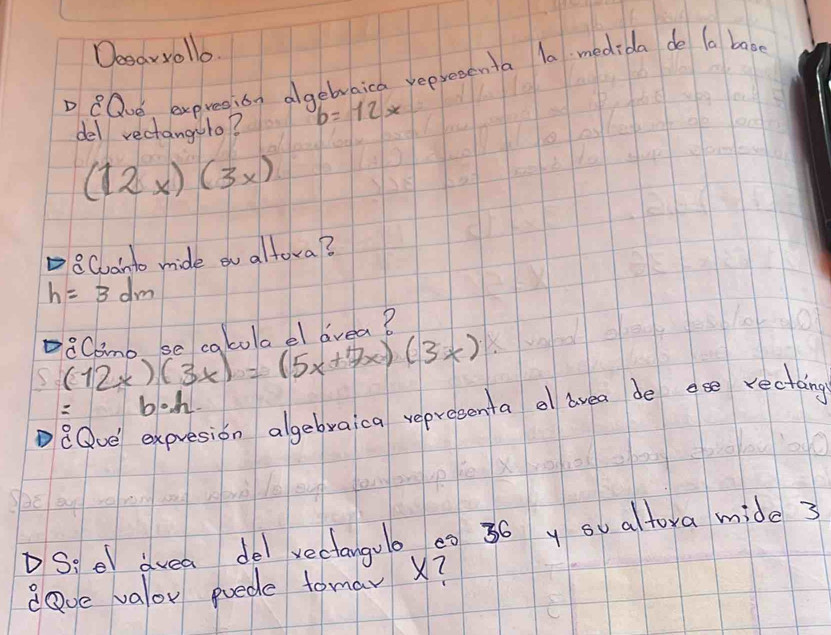 Desarrollo.
▷ ¿Qué expresión algebraica representa la medida de la base
del rectangulo? b = 12x
(12x) (3x)
▷ ¿Cuánto mide su altura?
h = 3 dm
▷ ¿Cómo se calcula el área?
(12x) (3x) = (5x+7x) (3x).
= b·h.
▷ ¿Qué expresión algebraica representa el área de ese rectáng
▷ Si el área del rectangulo es 36 y su altura mide 3
¿Que valor puede tomar X?